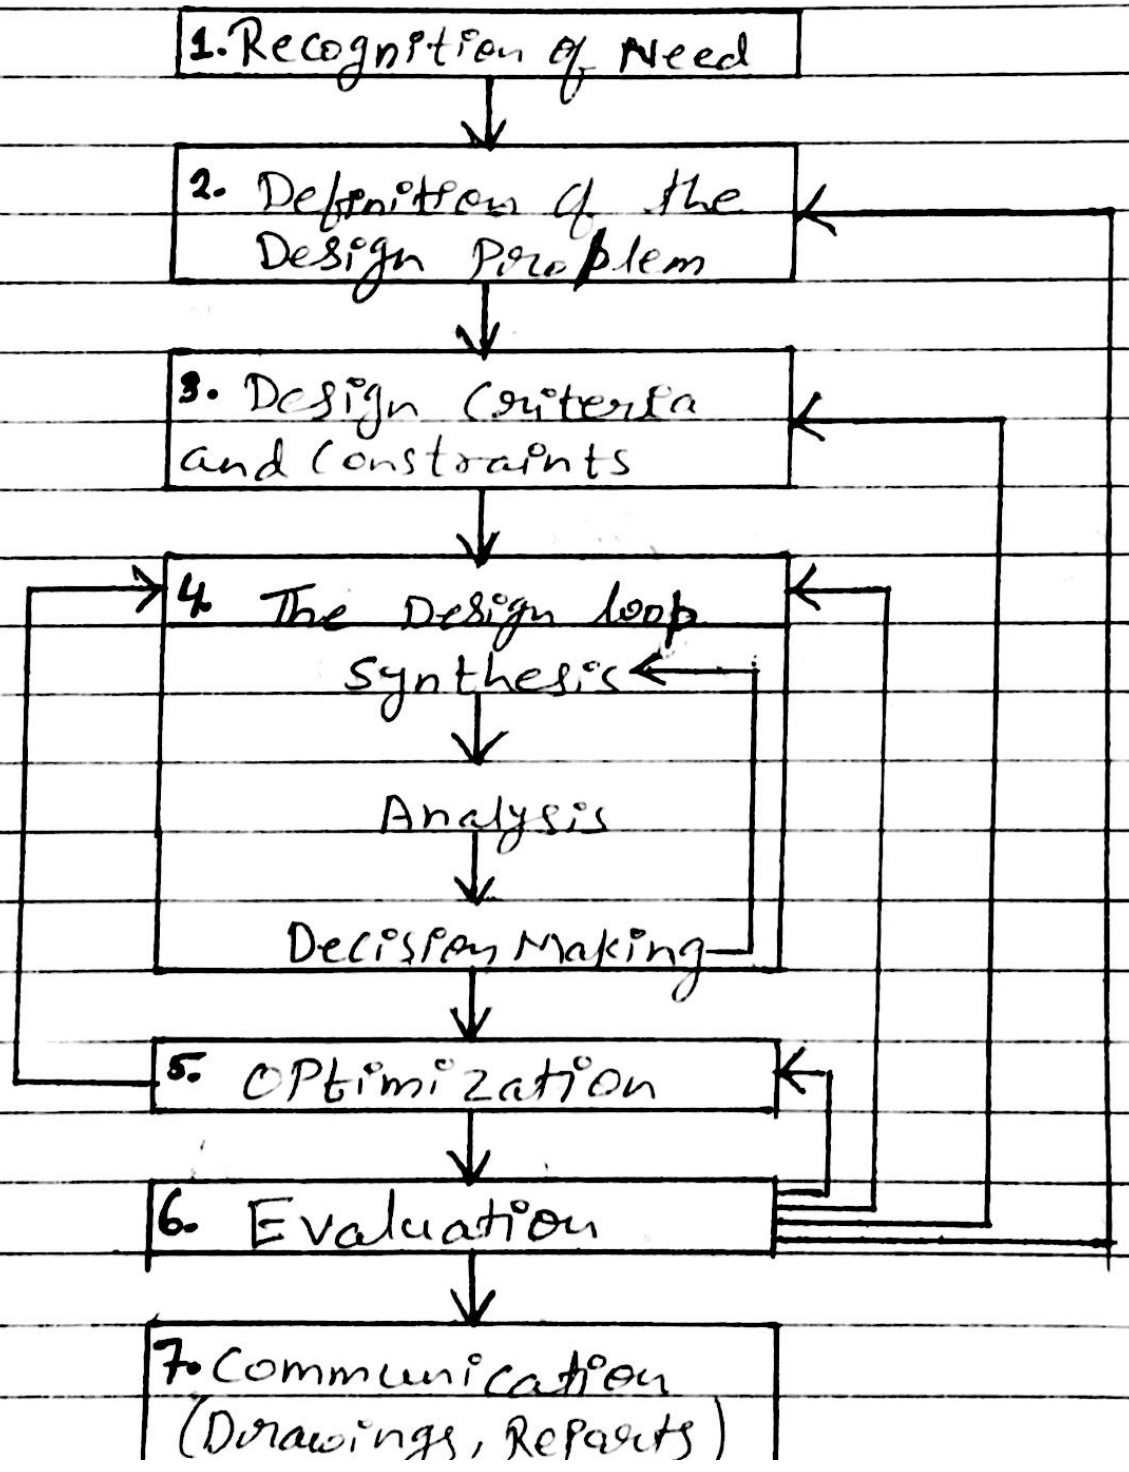 1. Recognition of Need
2. Definition of the
Design Problem
3. Design Criteria
and Constraints
4. The Design loop
Synthesis
Analysis
Decision Making
5. OPtimization
6. Evaluation
7. Communication
(Drawings, Reports)